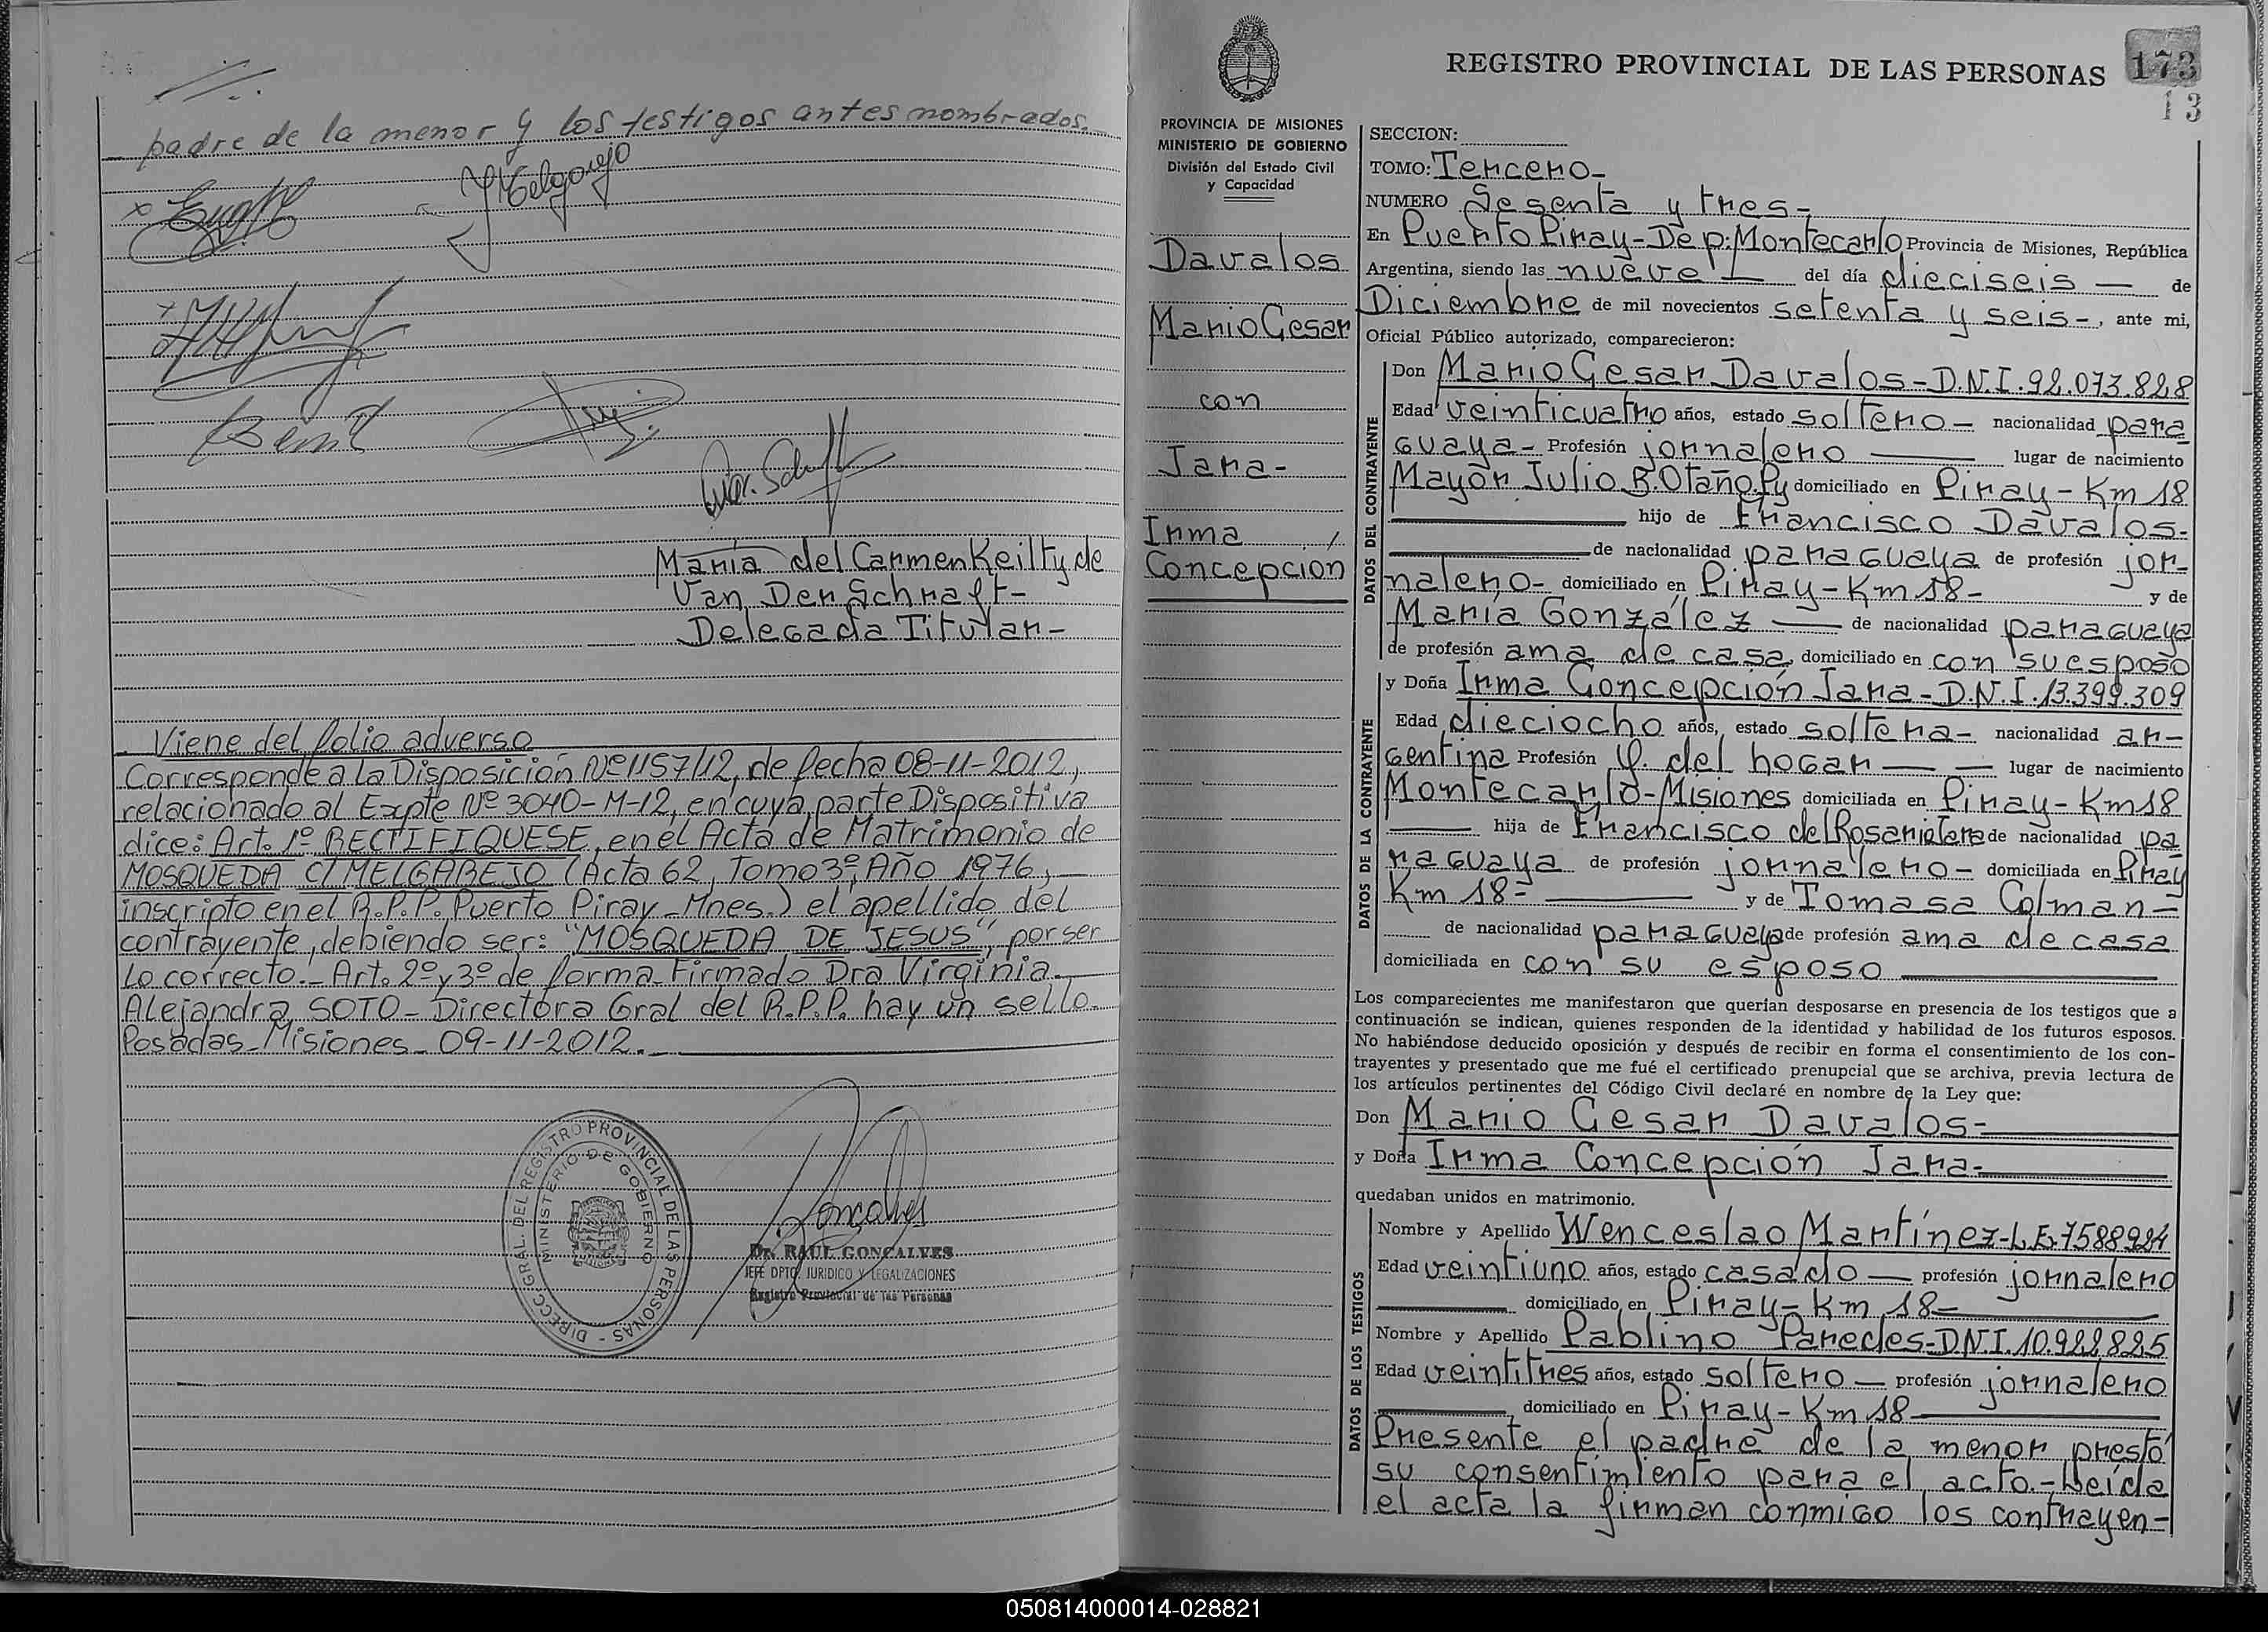 padre de la menor y los testigos antes nombrados.
María del Carmen Keilty de
Van Der Schraft-
Delegada Titular-
Viene del folio adverso
Corresponde a la Disposición Nº 1157/12, de fecha 08-11-2012,
relacionado al Expte Nº 3040-M-12, en cuya parte Dispositiva
dice: Art. 1º RECTIFIQUESE, en el Acta de Matrimonio de
MOSQUEDA C/ MELGAREJO (Acta 62, Tomo 3º, Año 1976,
inscripto en el R.P.P. Puerto Piray-Mnes.) el apellido del
contrayente, debiendo ser: "MOSQUEDA DE JESUS", por ser
lo correcto.- Art. 2º y 3º de forma-Firmado Dra Virginia
Alejandra SOTO-Directora Gral del R.P.P. hay un sello-
Posadas-Misiones-09-11-2012.
DIRECC. GRAL. DEL REGISTRO PROVINCIAL DE LAS PERSONAS -
MINISTERIO DE GOBIERNO
MISIONES
Goncalves
Dr. RAUL GONCALVES
JEFE DPTO. JURIDICO Y LEGALIZACIONES
Registro Provincial de las Personas
REGISTRO PROVINCIAL DE LAS PERSONAS
173
13
PROVINCIA DE MISIONES
MINISTERIO DE GOBIERNO
División del Estado Civil
y Capacidad
Davalos
Mario Cesar
con
Jara-
Irma
Concepcion
SECCION:
TOMO: Tercero-
NUMERO Sesenta y tres-
En Puerto Piray-Dep: Montecarlo Provincia de Misiones, República
Argentina, siendo las nueve del día dieciseis — de
Diciembre de mil novecientos setenta y seis-, ante mi,
Oficial Público autorizado, comparecieron:
DATOS DEL CONTRAYENTE
Don Mario Cesar Davalos-D.N.I. 92.073.828
Edad veinticuatro años, estado soltero- nacionalidad para
guaya- Profesión jornalero lugar de nacimiento
Mayor Julio B. Otaño. Py domiciliado en Piray-Km 18
hijo de Francisco Davalos-
de nacionalidad paraguaya de profesión jor-
nalero- domiciliado en Piray-Km 18- y de
María González de nacionalidad paraguaya
de profesión ama de casa, domiciliado en con su esposo
DATOS DE LA CONTRAYENTE
y Doña Irma Concepción Jara-D.N.I. 13.399.309
Edad dieciocho años, estado soltera- nacionalidad ar-
gentina Profesión Q. del hogar lugar de nacimiento
Montecarlo-Misiones domiciliada en Piray-Km 18
hija de Francisco del Rosario Jara de nacionalidad pa
raguaya de profesión jornalero- domiciliada en Piray
Km 18- y de Tomasa Colman-
de nacionalidad paraguaya de profesión ama de casa
domiciliada en con su esposo
Los comparecientes me manifestaron que querían desposarse en presencia de los testigos que a
continuación se indican, quienes responden de la identidad y habilidad de los futuros esposos.
No habiéndose deducido oposición y después de recibir en forma el consentimiento de los con-
trayentes y presentado que me fué el certificado prenupcial que se archiva, previa lectura de
los artículos pertinentes del Código Civil declaré en nombre de la Ley que:
Don Mario Cesar Davalos-
y Doña Irma Concepción Jara-
quedaban unidos en matrimonio.
DATOS DE LOS TESTIGOS
Nombre y Apellido Wenceslao Martínez-L.E. 7588924
Edad veintiuno años, estado casado — profesión jornalero
domiciliado en Piray-Km 18-
Nombre y Apellido Pablino Paredes-D.N.I. 10.922.825
Edad veintitres años, estado soltero — profesión jornalero
domiciliado en Piray-Km 18
Presente el padre de la menor prestó
su consentimiento para el acto.-Leída
el acta la firman conmigo los contrayen-
050814000014-028821